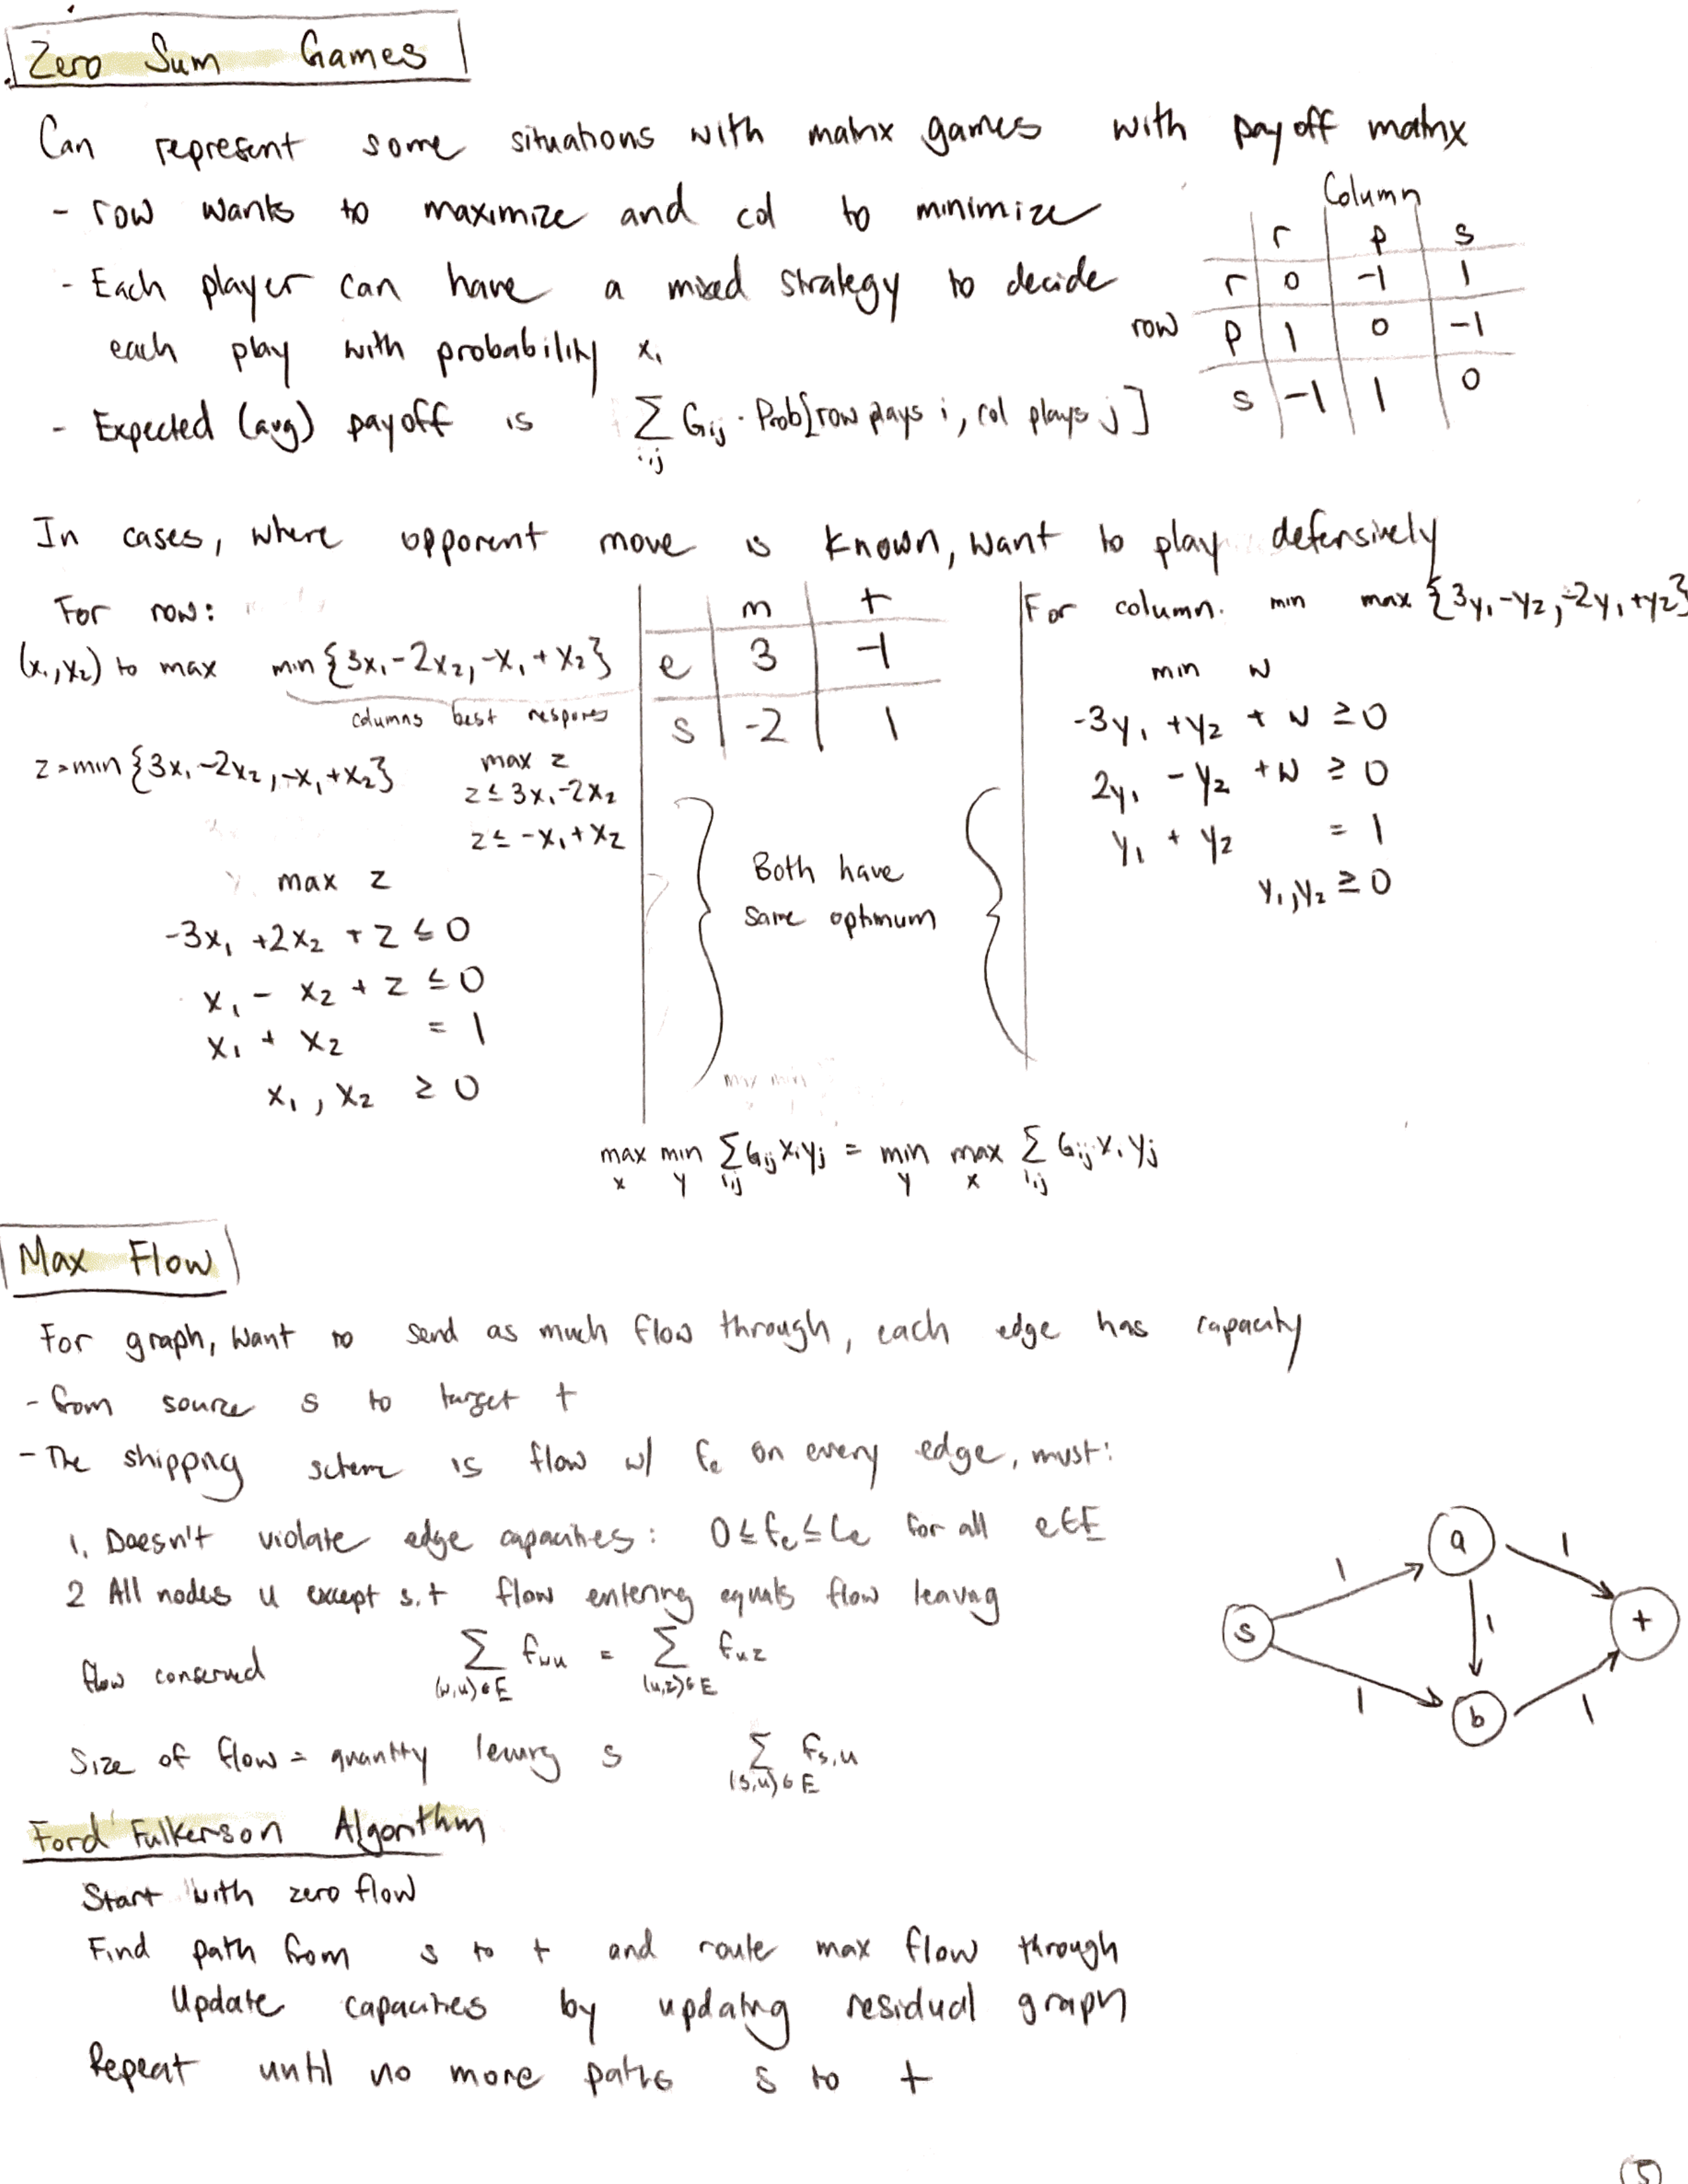 Zero Sum Games
Can represent some situations with matrix games with payoff matrix
- row wants to maximize and col to minimize
- Each player can have a mixed strategy to decide
each play with probability xᵢ
- Expected (avg) payoff is ∑ᵢ,ⱼ Gᵢⱼ · Prob[row plays i, col plays j]
Column
r p s
r 0 -1 1
row p 1 0 -1
s -1 1 0
In cases, where opponent move is known, want to play defensively
For row:
(x₁, x₂) to max min {3x₁ - 2x₂, -x₁ + x₂}
columns best respons
z = min {3x₁ - 2x₂, -x₁ + x₂}
max z
z ≤ 3x₁ - 2x₂
z ≤ -x₁ + x₂
max z
-3x₁ + 2x₂ + z ≤ 0
x₁ - x₂ + z ≤ 0
x₁ + x₂ = 1
x₁, x₂ ≥ 0
m t
e 3 -1
s -2 1
Both have
same optimum
For column. min max {3y₁ - y₂, -2y₁ + y₂}
min w
-3y₁ + y₂ + w ≥ 0
2y₁ - y₂ + w ≥ 0
y₁ + y₂ = 1
y₁, y₂ ≥ 0
max min ∑ Gᵢⱼ xᵢ yⱼ = min max ∑ Gᵢⱼ xᵢ yⱼ
x y i,j y x i,j
Max Flow
For graph, want to send as much flow through, each edge has capacity
- from source s to target t
- The shipping scheme is flow w/ fₑ on every edge, must:
1. Doesn't violate edge capacities: 0 ≤ fₑ ≤ cₑ for all e ∈ E
2 All nodes u except s, t flow entering equals flow leaving
flow conserved ∑ f_wu = ∑ f_uz
(w,u) ∈ E (u,z) ∈ E
Size of flow = quantity leaving s ∑ f_s,u
(s,u) ∈ E
s 1 a 1 t
1
1 b 1
Ford Fulkerson Algorithm
Start with zero flow
Find path from s to t and route max flow through
Update capacities by updating residual graph
Repeat until no more paths s to t
5